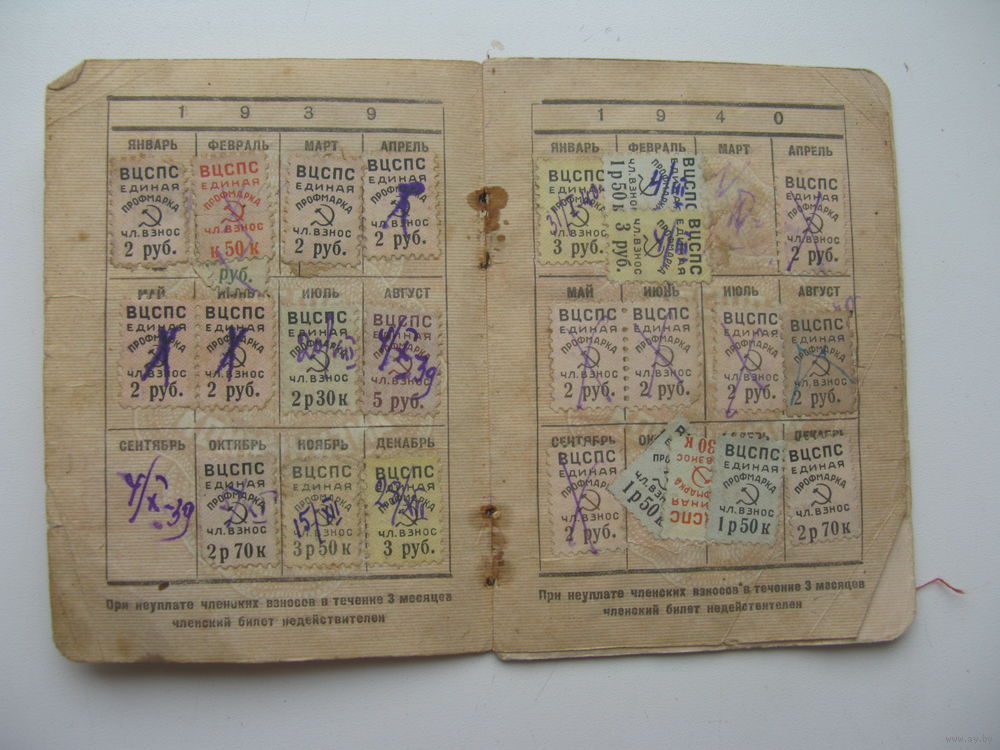 1 9 3 9
ЯНВАРЬ ФЕВРАЛЬ МАРТ АПРЕЛЬ
ВЦСПС ВЦСПС ВЦСПС ВЦСПС
ЕДИНАЯ ЕДИНАЯ ЕДИНАЯ ЕДИНАЯ
ПРОФМАРКА ПРОФМАРКА ПРОФМАРКА ПРОФМАРКА
ЧЛ. ВЗНОС ЧЛ. ВЗНОС ЧЛ. ВЗНОС ЧЛ. ВЗНОС
2 руб. к 50 к 2 руб. 2 руб.
руб.
МАЙ ИЮНЬ ИЮЛЬ АВГУСТ
ВЦСПС ВЦСПС ВЦСПС ВЦСПС
ЕДИНАЯ ЕДИНАЯ ЕДИНАЯ ЕДИНАЯ
ПРОФМАРКА ПРОФМАРКА ПРОФМАРКА ПРОФМАРКА
ЧЛ. ВЗНОС ЧЛ. ВЗНОС ЧЛ. ВЗНОС ЧЛ. ВЗНОС
2 руб. 2 руб. 2 р 30 к 5 руб.
СЕНТЯБРЬ ОКТЯБРЬ НОЯБРЬ ДЕКАБРЬ
ВЦСПС ВЦСПС ВЦСПС
ЕДИНАЯ ЕДИНАЯ ЕДИНАЯ
ПРОФМАРКА ПРОФМАРКА ПРОФМАРКА
ЧЛ. ВЗНОС ЧЛ. ВЗНОС ЧЛ. ВЗНОС
2 р 70 к 3 р 50 к 3 руб.
При неуплате членских взносов в течение 3 месяцев
членский билет недействителен
1 9 4 0
ЯНВАРЬ ФЕВРАЛЬ МАРТ АПРЕЛЬ
ВЦСПС ВЦСПС ВЦСПС ВЦСПС
ЕДИНАЯ ЕДИНАЯ ЕДИНАЯ ЕДИНАЯ
ПРОФМАРКА ПРОФМАРКА ПРОФМАРКА ПРОФМАРКА
ЧЛ. ВЗНОС ЧЛ. ВЗНОС ЧЛ. ВЗНОС ЧЛ. ВЗНОС
3 руб. 1 р 50 к 3 руб. 2 руб.
МАЙ ИЮНЬ ИЮЛЬ АВГУСТ
ВЦСПС ВЦСПС ВЦСПС ВЦСПС
ЕДИНАЯ ЕДИНАЯ ЕДИНАЯ ЕДИНАЯ
ПРОФМАРКА ПРОФМАРКА ПРОФМАРКА ПРОФМАРКА
ЧЛ. ВЗНОС ЧЛ. ВЗНОС ЧЛ. ВЗНОС ЧЛ. ВЗНОС
2 руб. 2 руб. 2 руб. 2 руб.
СЕНТЯБРЬ ДЕКАБРЬ
ВЦСПС ВЦСПС ВЦСПС ВЦСПС
ЕДИНАЯ ЕДИНАЯ ЕДИНАЯ ЕДИНАЯ
ПРОФМАРКА ПРОФМАРКА ПРОФМАРКА ПРОФМАРКА
ЧЛ. ВЗНОС ЧЛ. ВЗНОС ЧЛ. ВЗНОС ЧЛ. ВЗНОС
2 руб. 1 р 50 к 30 к 1 р 50 к 2 р 70 к
При неуплате членских взносов в течение 3 месяцев
членский билет недействителен
www.ay.by